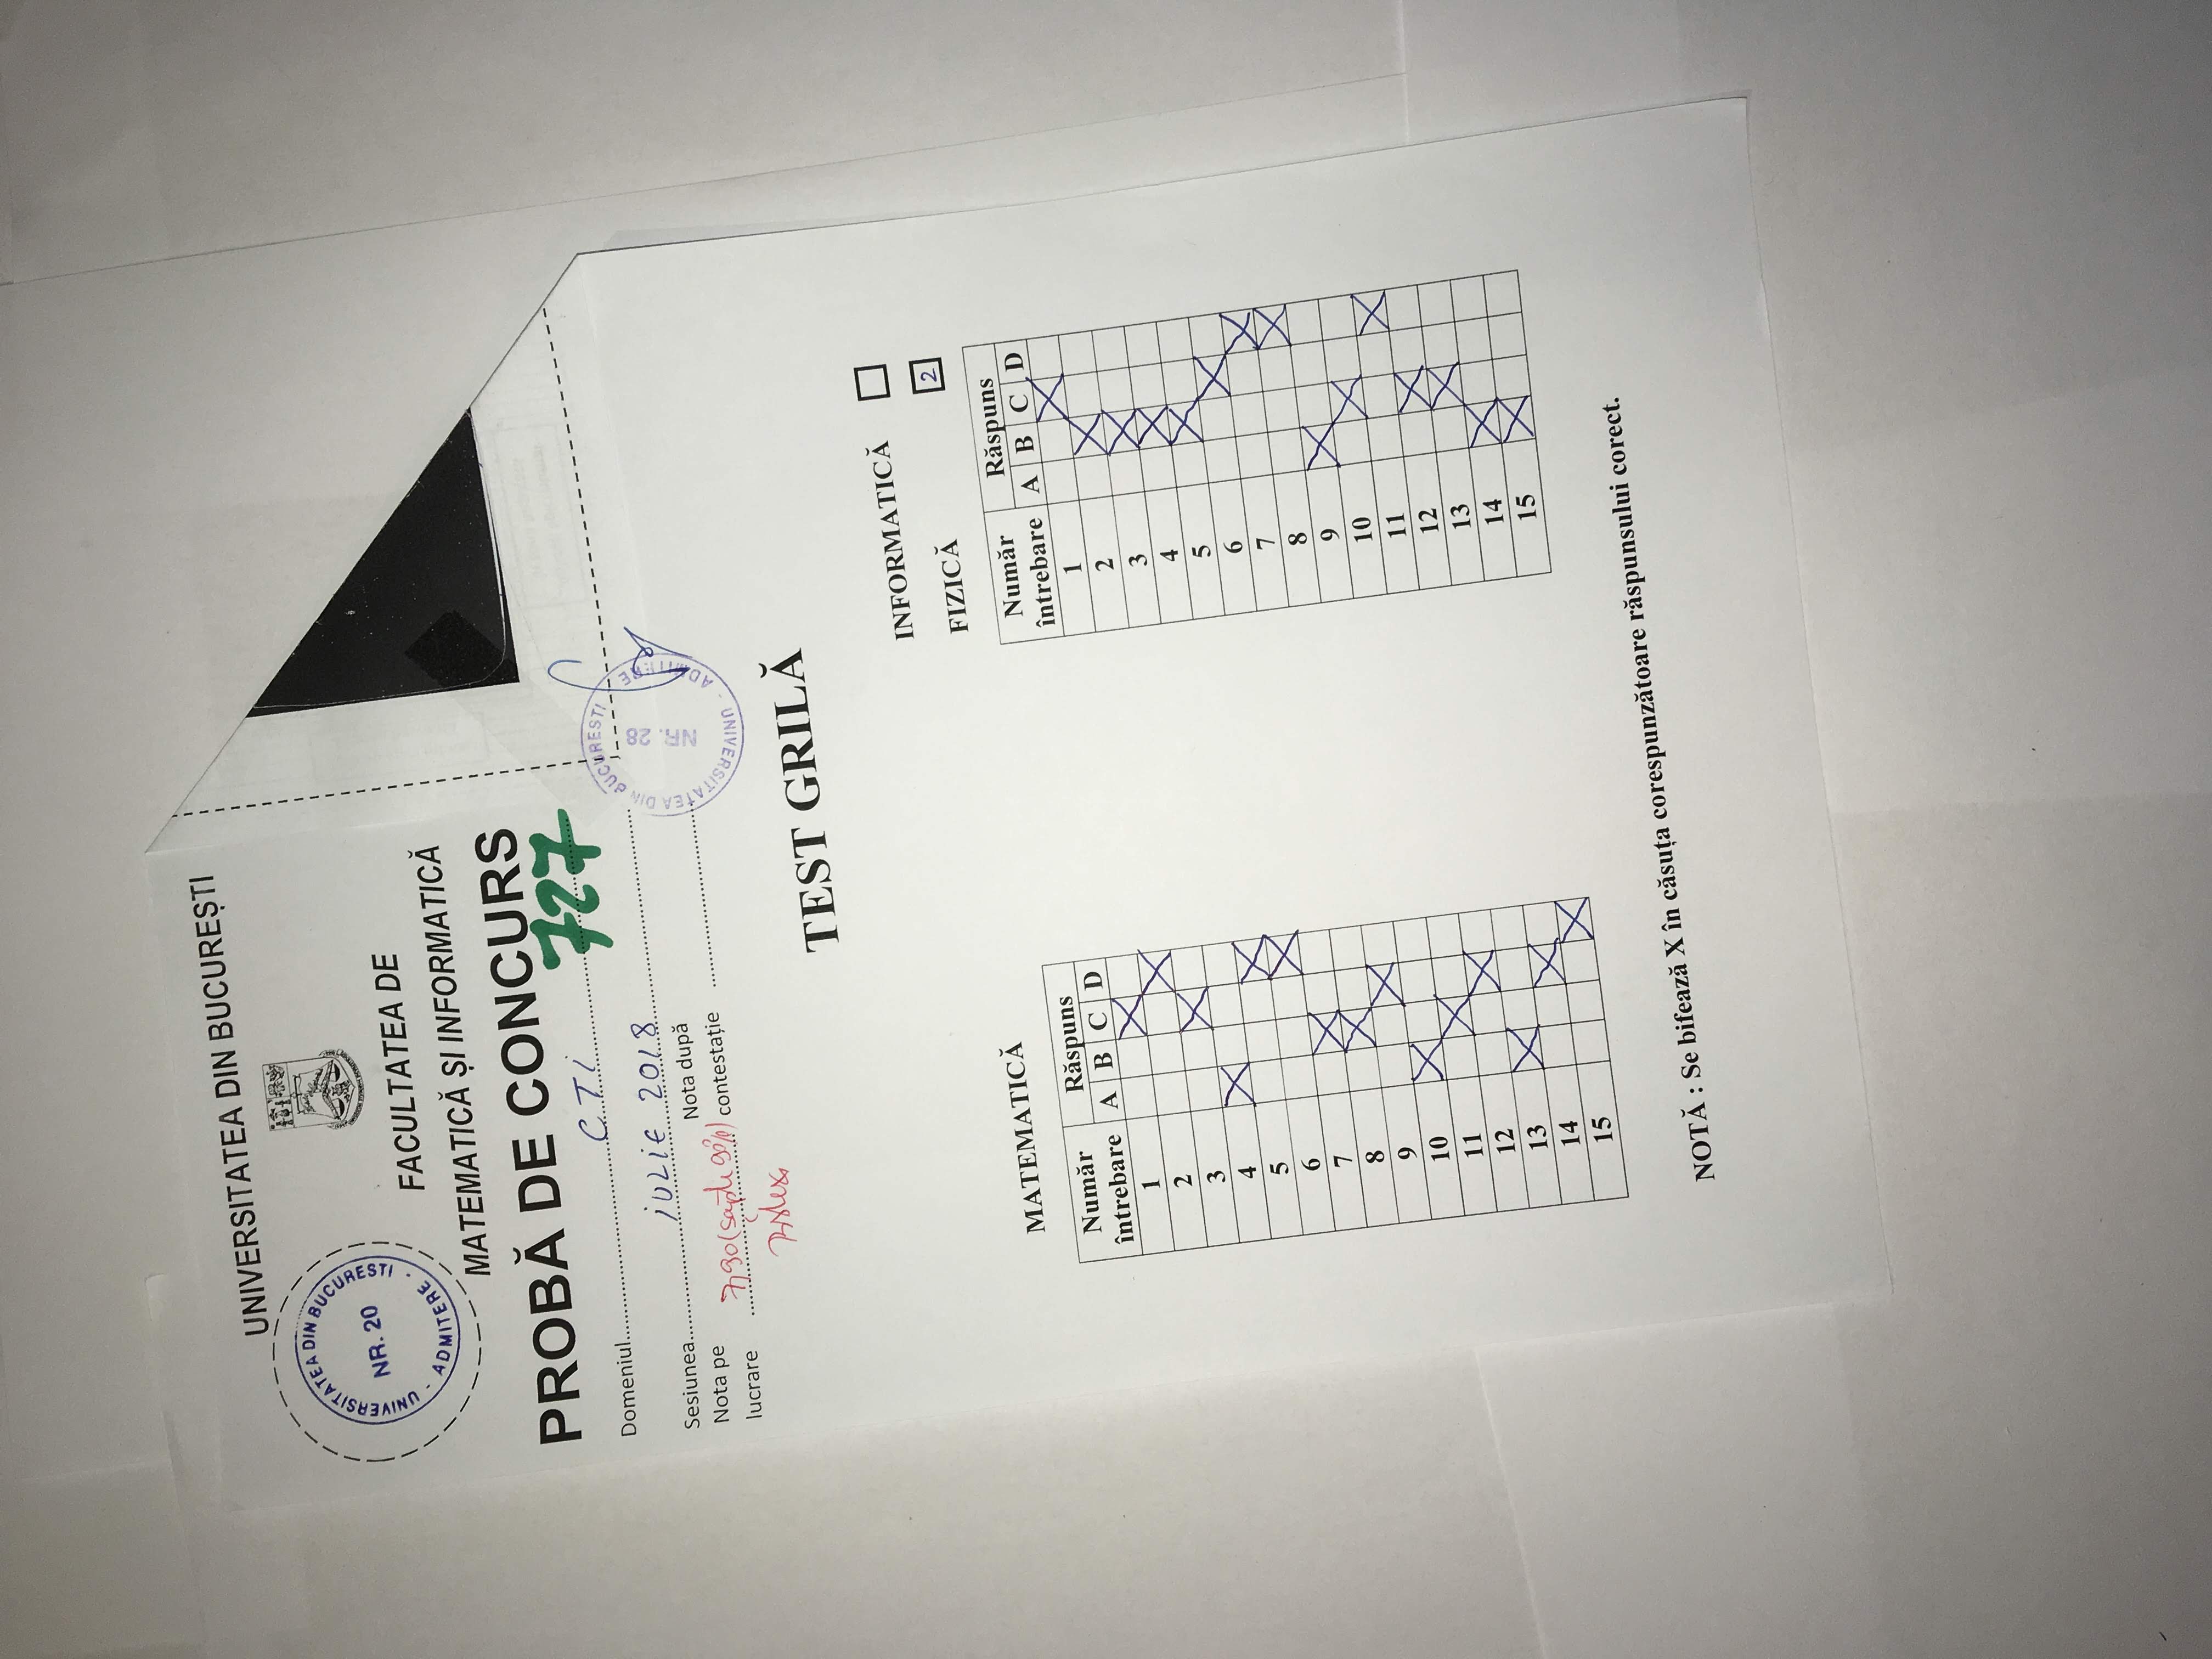 UNIVERSITATEA DIN BUCUREȘTI
UNIVERSITATEA DIN BUCURESTI - ADMITERE -
NR. 20
FACULTATEA DE
MATEMATICĂ ȘI INFORMATICĂ
PROBĂ DE CONCURS
727
Domeniul CTi
Sesiunea iulie 2018
Nota pe lucrare 7,90 (șapte 90%)
Nota după contestație
UNIVERSITATEA DIN BUCURESTI - ADMITERE
NR. 28
TEST GRILĂ
INFORMATICĂ
FIZICĂ 2
MATEMATICĂ
Număr întrebare Răspuns
A B C D
1 X
2 X
3 X
4 X
5 X
6 X
7 X
8 X
9 X
10 X
11 X
12 X
13 X
14 X
15 X
Număr întrebare Răspuns
A B C D
1 X
2 X
3 X
4 X
5 X
6 X
7 X
8 X
9 X
10 X
11 X
12 X
13 X
14 X
15 X
NOTĂ : Se bifează X în căsuța corespunzătoare răspunsului corect.